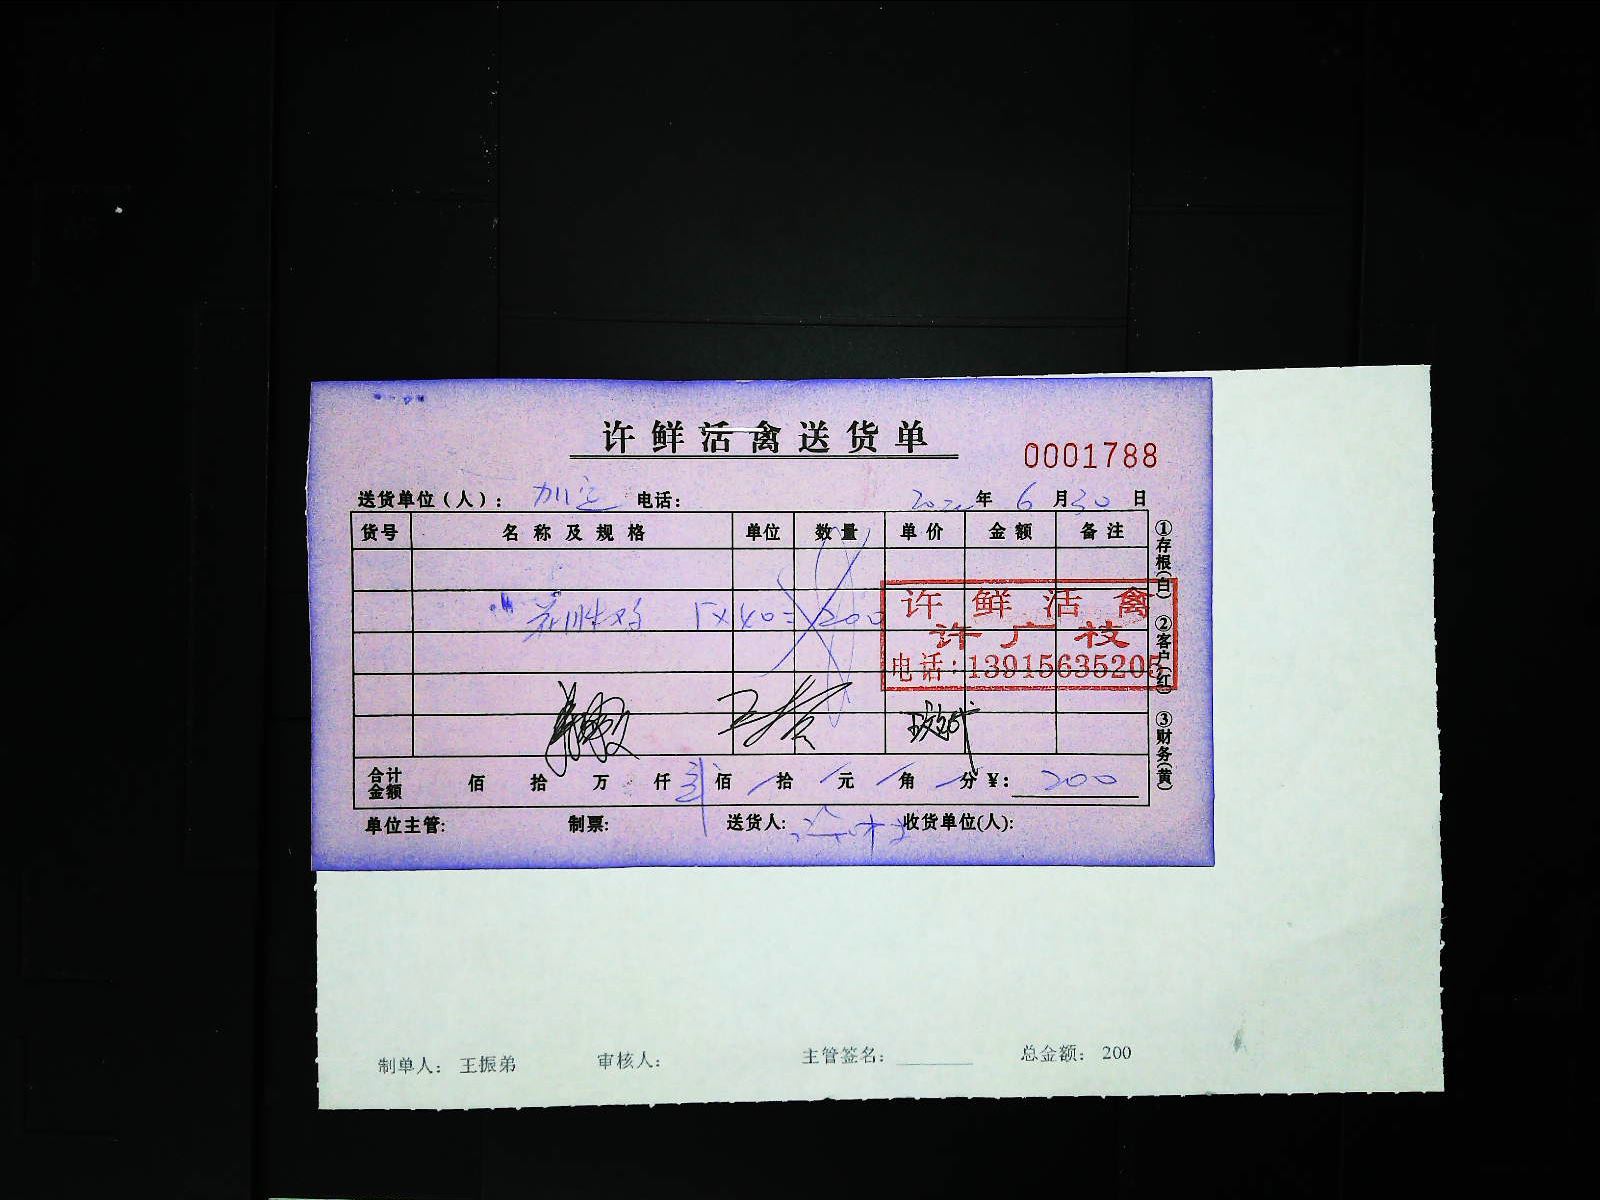 许鲜活禽送货单
0001788
送货单位（人）： 加定 电话： 年 6 月 30 日
货号 名称及规格 单位 数量 单价 金额 备注
5×40=200
许鲜活禽
许广枝
电话：13915635205
合计金额 佰 拾 万 仟 佰 拾 元 角 分 ¥： 200
单位主管： 制票： 送货人： 收货单位(人)：
①存根(白) ②客户(红) ③财务(黄)
制单人： 王振弟 审核人： 主管签名： 总金额： 200